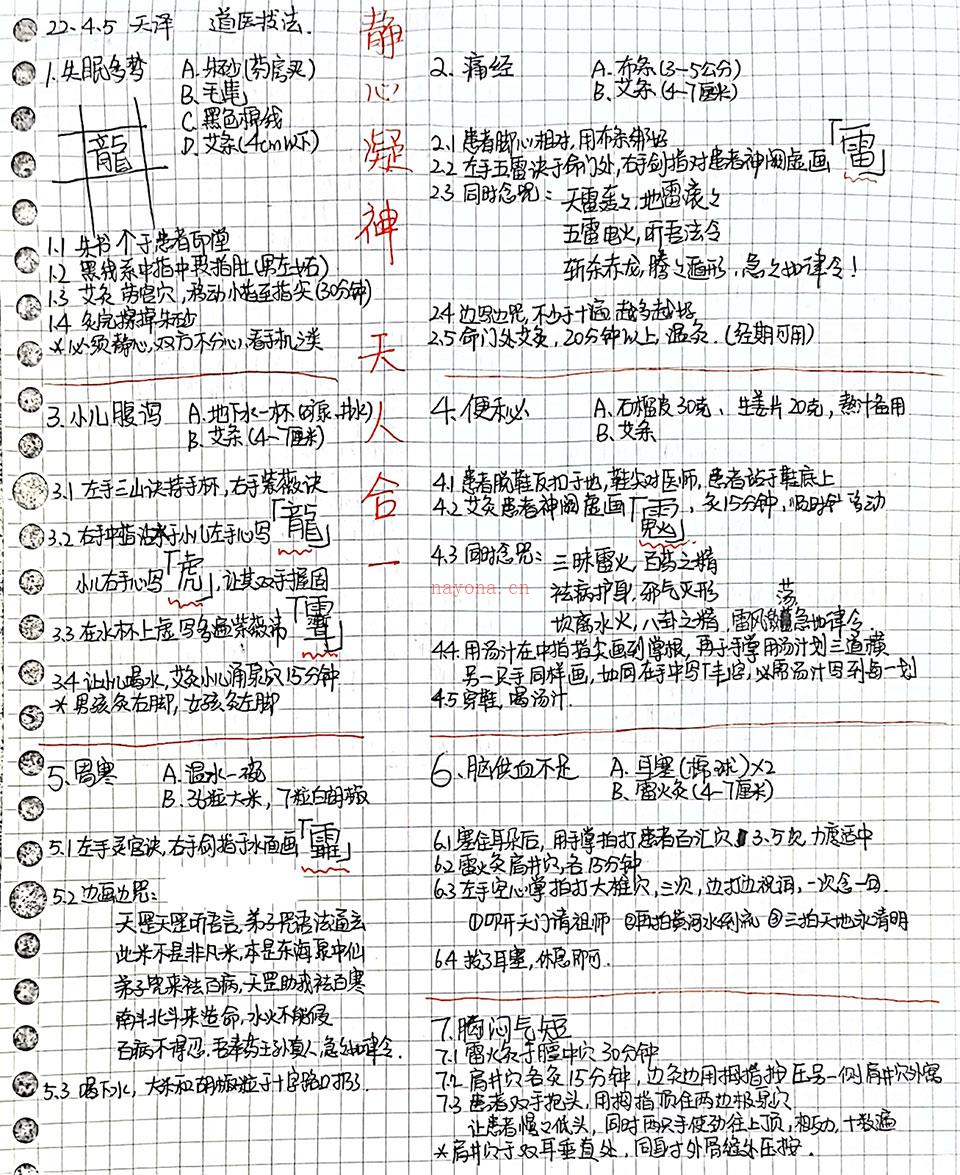 22.4.5 天泽 道医技法.
静心凝神天人合一
1.失眠多梦
A.朱砂(药店买)
B.毛笔
C.黑色棉线
D.艾条(4cm以下)
龍
1.1 朱书 于患者印堂
1.2 黑线系中指中段指肚(男左女右)
1.3 艾灸劳宫穴,移动小指至指尖(30分钟)
1.4 灸完擦掉朱砂
*必须静心,双方不分心,看手机之类
2. 痛经
A.布条(3-5公分)
B.艾条(4-7厘米)
2.1 患者脚心相对,用布条绑好
2.2 左手五雷诀于命门处,右手剑指对患者神阙虚画「雷」
2.3 同时念咒:天雷轰々,地雷滚々
五雷电火,听吾法令
斩杀赤龙,腾々遁形,急々如律令!
2.4 边写边咒,不少于十遍,越多越好
2.5 命门处艾灸,20分钟以上,温灸.(经期可用)
3.小儿腹泻
A.地下水一杯(矿泉,井水)
B.艾条(4-7厘米)
3.1 左手三山诀持手杯,右手紫薇诀
3.2 右手中指沾水于小儿左手心写「龍」
小儿右手心写「虎」,让其双手握固
3.3 在水杯上虚写 紫薇讳
3.4 让小儿喝水,艾灸小儿涌泉穴15分钟
*男孩灸右脚,女孩灸左脚
4.便秘
A.石榴皮30克、生姜片20克,熬汁备用
B.艾条
4.1 患者脱鞋反扣于地,鞋尖对医师,患者站于鞋底上
4.2 艾灸患者神阙虚画 ,灸15分钟,顺时针 动
4.3 同时念咒:三昧雷火,百草之精
祛病护身,邪气灭形
坎离水火,八卦之精,雷风 荡急如律令.
4.4.用汤汁在中指指尖画到掌根,再于手掌用汤汁划三道横
另一只手同样画,如同在手中写「丰」字,必需汤汁写到每一划
4.5 穿鞋,喝汤汁.
5.胃寒
A.温水一碗
B.36粒大米,7粒白胡椒
5.1 左手灵官诀,右手剑指于水面画
5.2 边画边咒:
天罡天罡听语言,弟子咒语法通玄
此米不是非凡米,本是东海泉中仙
弟子 来祛百病,天罡助我祛百寒
南斗北斗来造命,水火不能侵
百病不得忍,毛奉药王孙真人,急々如律令.
5.3 喝下水,大米和胡椒粒于十字路口扔了.
6.脑供血不足
A.耳塞(棉球)×2
B.雷火灸(4-7厘米)
6.1 塞住耳朵后,用手掌拍打患者百汇穴 3.5次,力度适中
6.2 雷火灸肩井穴,各15分钟
6.3 左手空心掌拍打大椎穴,三次,边打边祝词,一次念一句.
①叩开天门请祖师 ②再拍黄河水倒流 ③三拍天地永清明
6.4 拔了耳塞,休息即可.
7.胸闷气短
7.1 雷火灸于膻中穴30分钟
7.2 肩井穴各灸15分钟,边灸边用拇指按压另一侧肩井穴外窝
7.3 患者双手抱头,用拇指顶住两边 穴
让患者慢々低头,同时两只手使劲往上顶,相互力,十数遍
*肩井穴于双耳垂直处,同身寸外肩缝外压按.